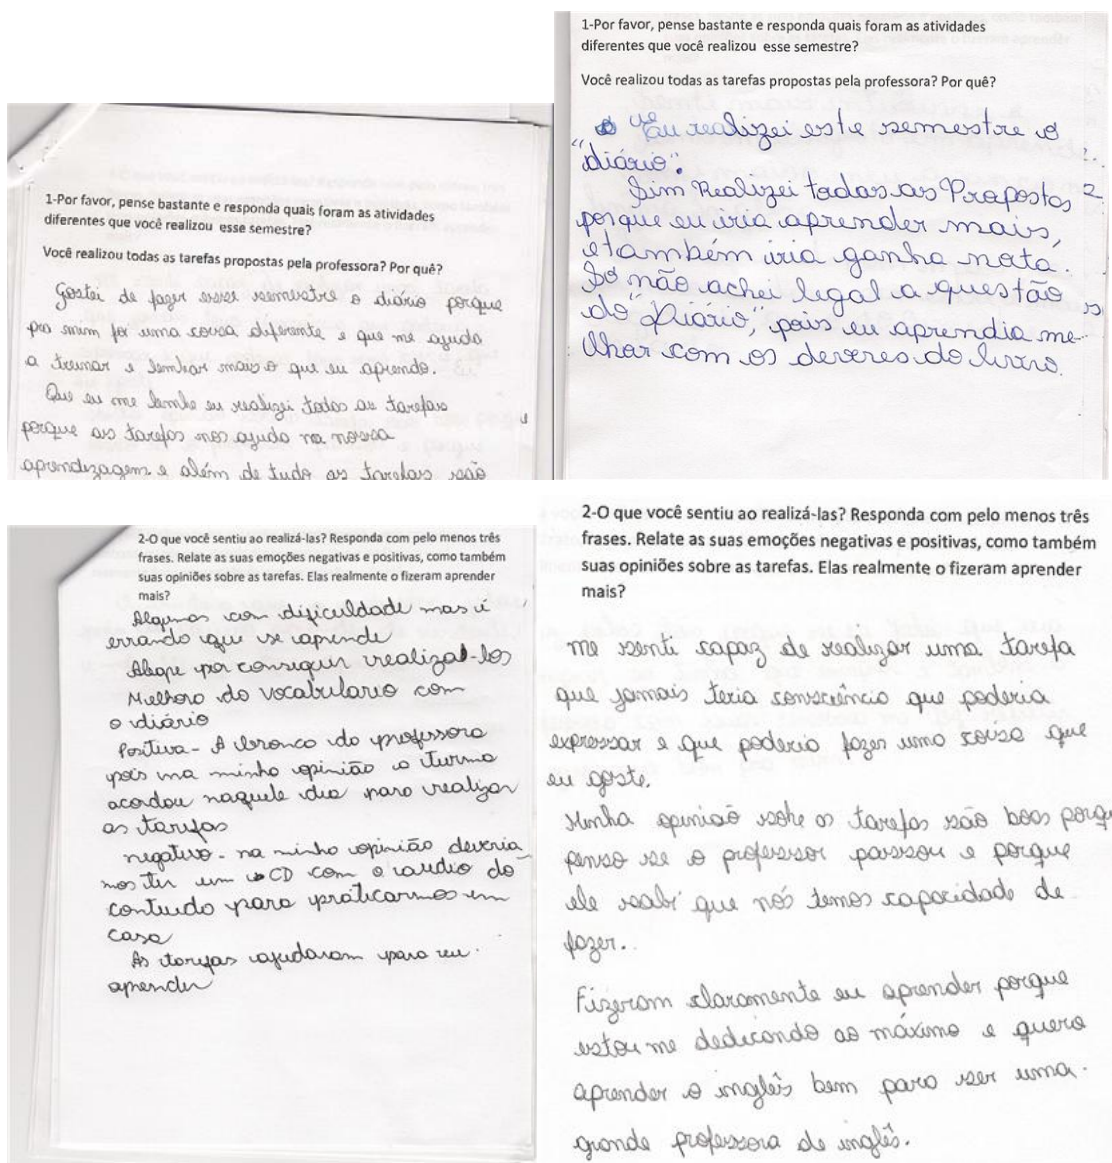 1-Por favor, pense bastante e responda quais foram as atividades
diferentes que você realizou esse semestre?
Você realizou todas as tarefas propostas pela professora? Por quê?
Gostei de fazer esse semestre o diário porque
pra mim foi uma cousa diferente e que me ajuda
a treinar e lembrar mais o que eu aprendo.
Que eu me lembe eu realizei todas as tarefas
porque as tarefas nos ajuda na nossa
aprendizagem e além de tudo as tarefas são
1-Por favor, pense bastante e responda quais foram as atividades
diferentes que você realizou esse semestre?
Você realizou todas as tarefas propostas pela professora? Por quê?
Eu realizei este semestre o
"diário".
Sim Realizei todas as Propostas
porque eu iria aprender mais,
e também iria ganha nota.
Só não achei legal a questão
do "Diário", pois eu aprendia me-
lhor com os deveres do livro.
2-O que você sentiu ao realizá-las? Responda com pelo menos três
frases. Relate as suas emoções negativas e positivas, como também
suas opiniões sobre as tarefas. Elas realmente o fizeram aprender
mais?
Algumas com dificuldade mas é
errando que se aprende
Alegre por conseguir realizal-los
Melhoro do vocabulario com
o diário
Positiva - A bronca da professora
pois na minha opinião a turma
acordou naquele dia para realizar
as tarefas
negativo - na minha opinião deveria-
mos ter um CD com o audio do
conteudo para praticarmos em
casa
As tarefas ajudaram para eu
aprender
2-O que você sentiu ao realizá-las? Responda com pelo menos três
frases. Relate as suas emoções negativas e positivas, como também
suas opiniões sobre as tarefas. Elas realmente o fizeram aprender
mais?
Me senti capaz de realizar uma tarefa
que jamais teria consciência que poderia
expressar e que poderia fazer uma cousa que
eu goste.
Minha opinião sobe as tarefas são boas porqu
penso se o professor passou e porque
ele sabi que nós temos capacidade de
fazer.
Fizeram claramente eu aprender porque
estou me dedicando ao máximo e quero
aprender o inglês bem para ser uma
grande professora de inglês.